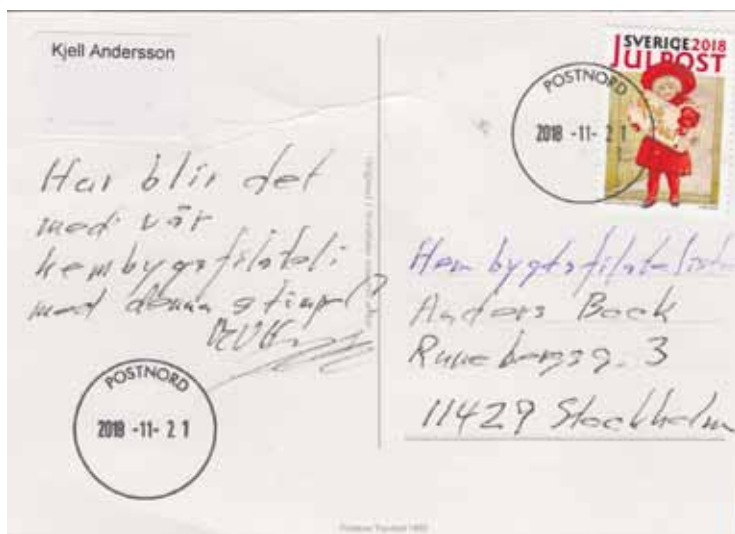 Kjell Andersson
Hur blir det
med vår
hembygsfilateli
med denna stimpel?
POSTNORD
2018 -11- 21
SVERIGE 2018
JULPOST
POSTNORD
2018 -11- 21
Hembygtsfilatelisten
Anders Book
Runebergsg. 3
11429 Stockholm